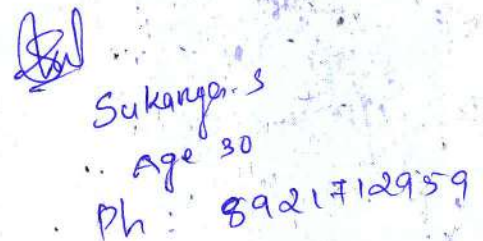 Sukanya. S
Age 30
Ph : 8921712959